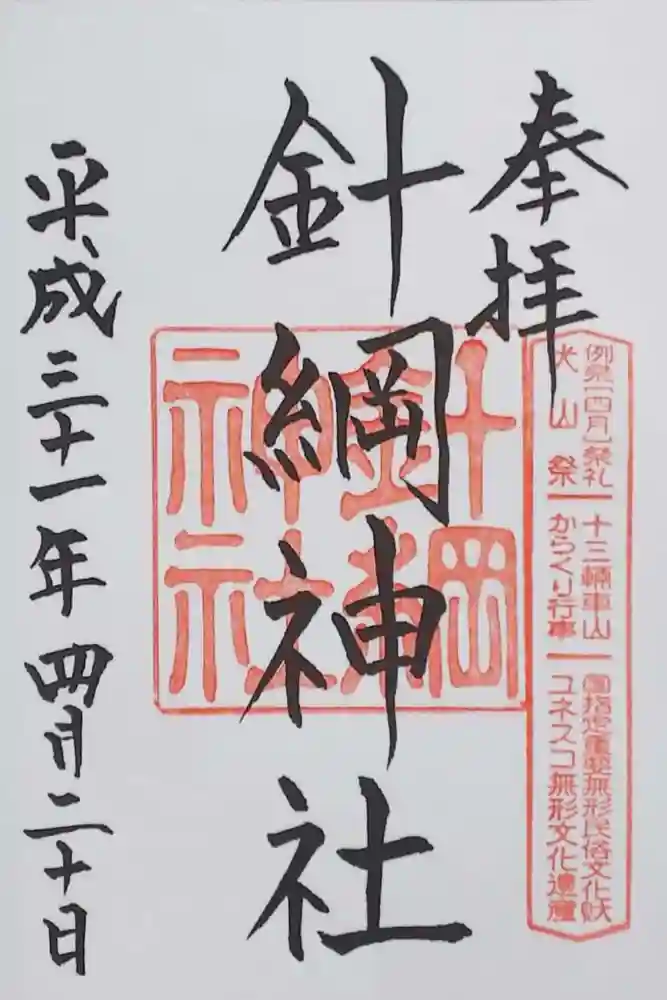 奉拝
例祭(四月)祭礼
犬山祭
十三輛車山
からくり行事
國指定重要無形民俗文化財
ユネスコ無形文化遺産
針綱神社
針綱神社
平成三十一年四月二十日